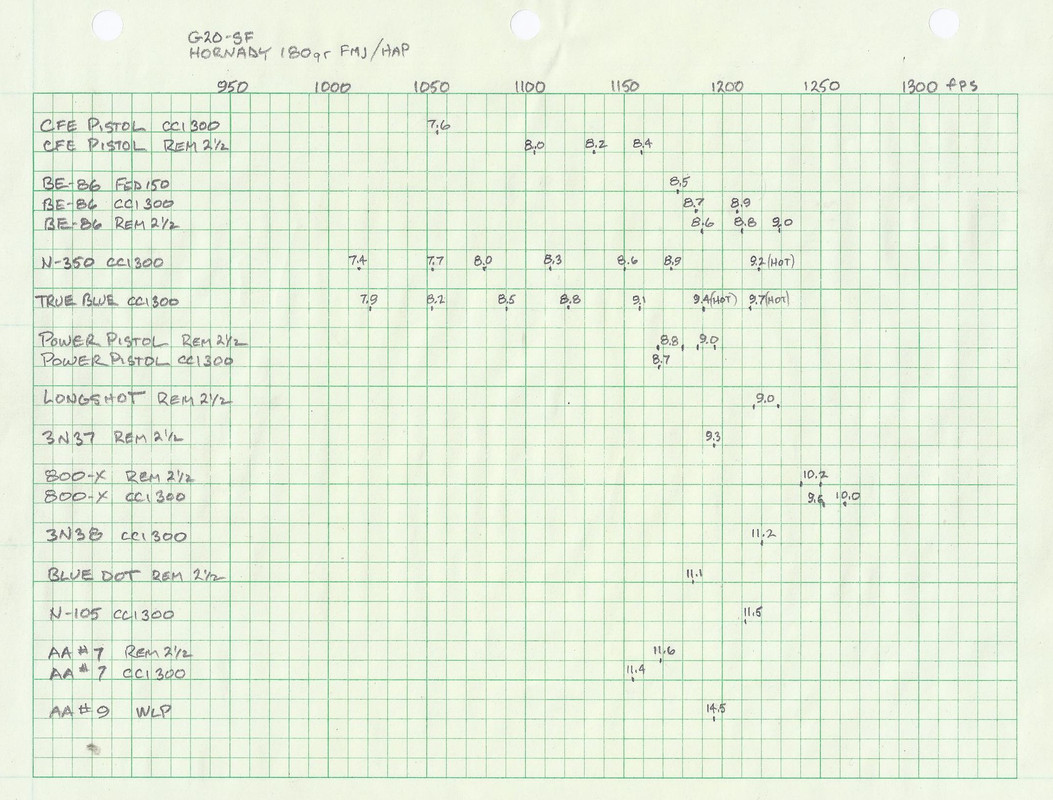 G20-SF
HORNADY 180gr FMJ/HAP
950 1000 1050 1100 1150 1200 1250 1300 fps
CFE PISTOL CCI 300 7.6
CFE PISTOL REM 2½ 8.0 8.2 8.4
BE-86 FED 150 8.5
BE-86 CCI 300 8.7 8.9
BE-86 REM 2½ 8.6 8.8 9.0
N-350 CCI 300 7.4 7.7 8.0 8.3 8.6 8.9 9.2 (HOT)
TRUE BLUE CCI 300 7.9 8.2 8.5 8.8 9.1 9.4 (HOT) 9.7 (HOT)
POWER PISTOL REM 2½ 8.8 9.0
POWER PISTOL CCI 300 8.7
LONGSHOT REM 2½ 9.0
3N37 REM 2½ 9.3
800-X REM 2½ 10.2
800-X CCI 300 9.6 10.0
3N38 CCI 300 11.2
BLUE DOT REM 2½ 11.1
N-105 CCI 300 11.5
AA #7 REM 2½ 11.6
AA #7 CCI 300 11.4
AA #9 WLP 14.5